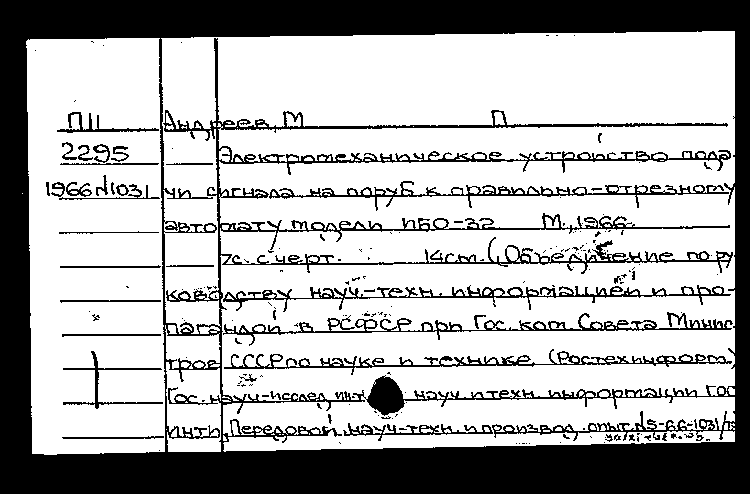 П11 Андреев, М П
2295 Электромеханическое устройство пода-
1966 №1031 чи сигнала на поруб к правильно-отрезному
автомату модели ПБО-32 М., 1966.
7с. с черт. 14см. (Объединение по ру-
ководству науч.-техн. информацией и про-
пагандой в РСФСР при Гос. ком. Совета Минис
тров СССР по науке и технике (Ростехинформ.)
Гос. науч-исслед. инт науч. и техн. информации ГОС
ИНТИ, Передовой науч-техн. и производ. опыт. №5-66-1031/